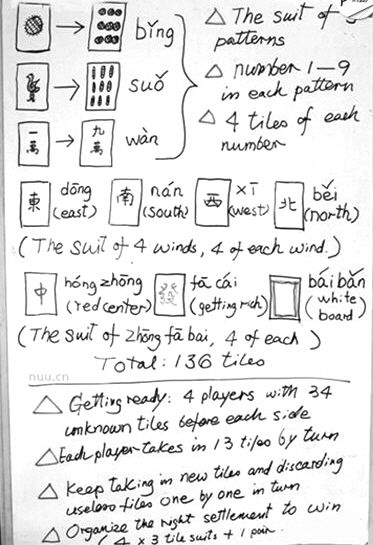 bǐng
suǒ
一萬 九萬 wàn
△ The suit of
patterns
△ number 1–9
in each pattern
△ 4 tiles of each
number
東 dōng (east) 南 nán (south) 西 xī (west) 北 běi (north)
(The suit of 4 winds, 4 of each wind.)
中 hóng zhōng (red center) fā cái (getting rich) bái bǎn (white board)
(The suit of zhōng fā bai, 4 of each)
Total: 136 tiles
nuu.cn
△ Getting ready: 4 players with 34
unknown tiles before each side
△ Each player takes in 13 tiles by turn
△ Keep taking in new tiles and discarding
useless tiles one by one in turn
△ Organize the right settlement to win
(4 × 3 tile suits + 1 pair.